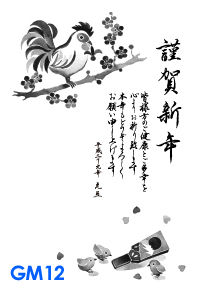 謹賀新年
皆様方のご健康とご多幸を
心よりお祈り致します
本年もどうぞよろしく
お願い申し上げます
平成二十九年 元旦
GM12